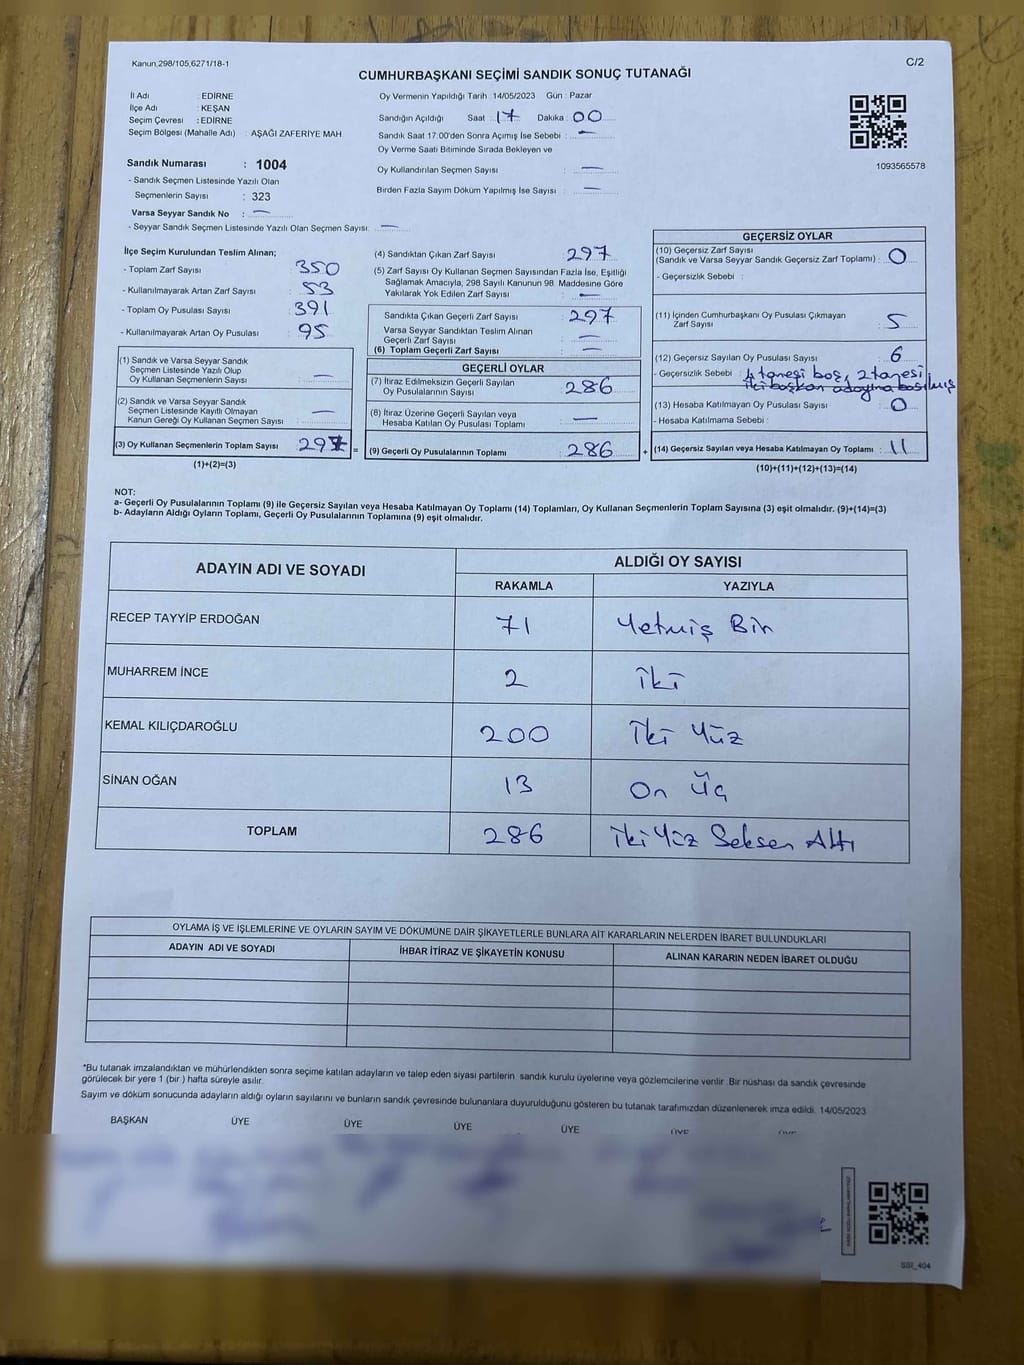 Kanun,298/105,6271/18-1
C/2
CUMHURBAŞKANI SEÇİMİ SANDIK SONUÇ TUTANAĞI
İl Adı : EDİRNE
İlçe Adı : KEŞAN
Seçim Çevresi : EDİRNE
Seçim Bölgesi (Mahalle Adı) : AŞAĞI ZAFERİYE MAH
Oy Vermenin Yapıldığı Tarih :14/05/2023 Gün : Pazar
Sandığın Açıldığı Saat : 17 Dakika : 00
Sandık Saat 17.00'den Sonra Açımış İse Sebebi : —
Oy Verme Saati Bitiminde Sırada Bekleyen ve
Oy Kullandırılan Seçmen Sayısı : —
Birden Fazla Sayım Döküm Yapılmış İse Sayısı : —
1093565578
Sandık Numarası : 1004
- Sandık Seçmen Listesinde Yazılı Olan
Seçmenlerin Sayısı : 323
Varsa Seyyar Sandık No : —
- Seyyar Sandık Seçmen Listesinde Yazılı Olan Seçmen Sayısı: —
İlçe Seçim Kurulundan Teslim Alınan;
- Toplam Zarf Sayısı : 350
- Kullanılmayarak Artan Zarf Sayısı : 53
- Toplam Oy Pusulası Sayısı : 391
- Kullanılmayarak Artan Oy Pusulası : 95
(1) Sandık ve Varsa Seyyar Sandık
Seçmen Listesinde Yazılı Olup
Oy Kullanan Seçmenlerin Sayısı : —
(2) Sandık ve Varsa Seyyar Sandık
Seçmen Listesinde Kayıtlı Olmayan
Kanun Gereği Oy Kullanan Seçmen Sayısı : —
(3) Oy Kullanan Seçmenlerin Toplam Sayısı : 297 =
(1)+(2)=(3)
(4) Sandıktan Çıkan Zarf Sayısı : 297
(5) Zarf Sayısı Oy Kullanan Seçmen Sayısından Fazla İse, Eşitliği
Sağlamak Amacıyla, 298 Sayılı Kanunun 98. Maddesine Göre
Yakılarak Yok Edilen Zarf Sayısı : —
Sandıkta Çıkan Geçerli Zarf Sayısı : 297
Varsa Seyyar Sandıktan Teslim Alınan
Geçerli Zarf Sayısı : —
(6) Toplam Geçerli Zarf Sayısı : —
GEÇERLİ OYLAR
(7) İtiraz Edilmeksizin Geçerli Sayılan
Oy Pusulalarının Sayısı : 286
(8) İtiraz Üzerine Geçerli Sayılan veya
Hesaba Katılan Oy Pusulası Toplamı : —
(9) Geçerli Oy Pusulalarının Toplamı : 286 +
GEÇERSİZ OYLAR
(10) Geçersiz Zarf Sayısı
(Sandık ve Varsa Seyyar Sandık Geçersiz Zarf Toplamı) : 0
- Geçersizlik Sebebi :
(11) İçinden Cumhurbaşkanı Oy Pusulası Çıkmayan
Zarf Sayısı : 5
(12) Geçersiz Sayılan Oy Pusulası Sayısı : 6
- Geçersizlik Sebebi : 4 tanesi boş, 2 tanesi
iki başkan adayına basılmış
(13) Hesaba Katılmayan Oy Pusulası Sayısı : 0
- Hesaba Katılmama Sebebi :
(14) Geçersiz Sayılan veya Hesaba Katılmayan Oy Toplamı : 11
(10)+(11)+(12)+(13)=(14)
NOT:
a- Geçerli Oy Pusulalarının Toplamı (9) ile Geçersiz Sayılan veya Hesaba Katılmayan Oy Toplamı (14) Toplamları, Oy Kullanan Seçmenlerin Toplam Sayısına (3) eşit olmalıdır. (9)+(14)=(3)
b- Adayların Aldığı Oyların Toplamı, Geçerli Oy Pusulalarının Toplamına (9) eşit olmalıdır.
ADAYIN ADI VE SOYADI
ALDIĞI OY SAYISI
RAKAMLA YAZIYLA
RECEP TAYYİP ERDOĞAN 71 Yetmiş Bir
MUHARREM İNCE 2 İki
KEMAL KILIÇDAROĞLU 200 İki Yüz
SİNAN OĞAN 13 On Üç
TOPLAM 286 İki Yüz Seksen Altı
OYLAMA İŞ VE İŞLEMLERİNE VE OYLARIN SAYIM VE DÖKÜMÜNE DAİR ŞİKAYETLERLE BUNLARA AİT KARARLARIN NELERDEN İBARET BULUNDUKLARI
ADAYIN ADI VE SOYADI İHBAR İTİRAZ VE ŞİKAYETİN KONUSU ALINAN KARARIN NEDEN İBARET OLDUĞU
*Bu tutanak imzalandıktan ve mühürlendikten sonra seçime katılan adayların ve talep eden siyasi partilerin sandık kurulu üyelerine veya gözlemcilerine verilir. Bir nüshası da sandık çevresinde
görülecek bir yere 1 (bir ) hafta süreyle asılır.
Sayım ve döküm sonucunda adayların aldığı oyların sayılarını ve bunların sandık çevresinde bulunanlara duyurulduğunu gösteren bu tutanak tarafımızdan düzenlenerek imza edildi. 14/05/2023
BAŞKAN ÜYE ÜYE ÜYE ÜYE ÜYE ÜYE
SSI_404